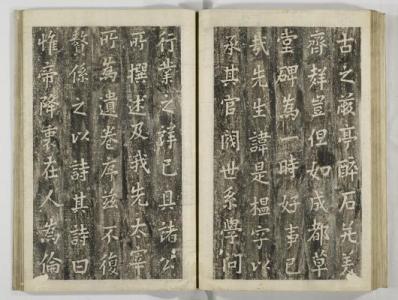 古之亭醉石並美
齊稱豈但如成都草
堂碑為一時好事已
哉先生諱是楹字以
承其官閥世系學問
行業之詳已具諸公
所撰述及我先大宰
所為遺卷序玆不復
贅係之以詩其詩曰
惟帝降衷在人為倫